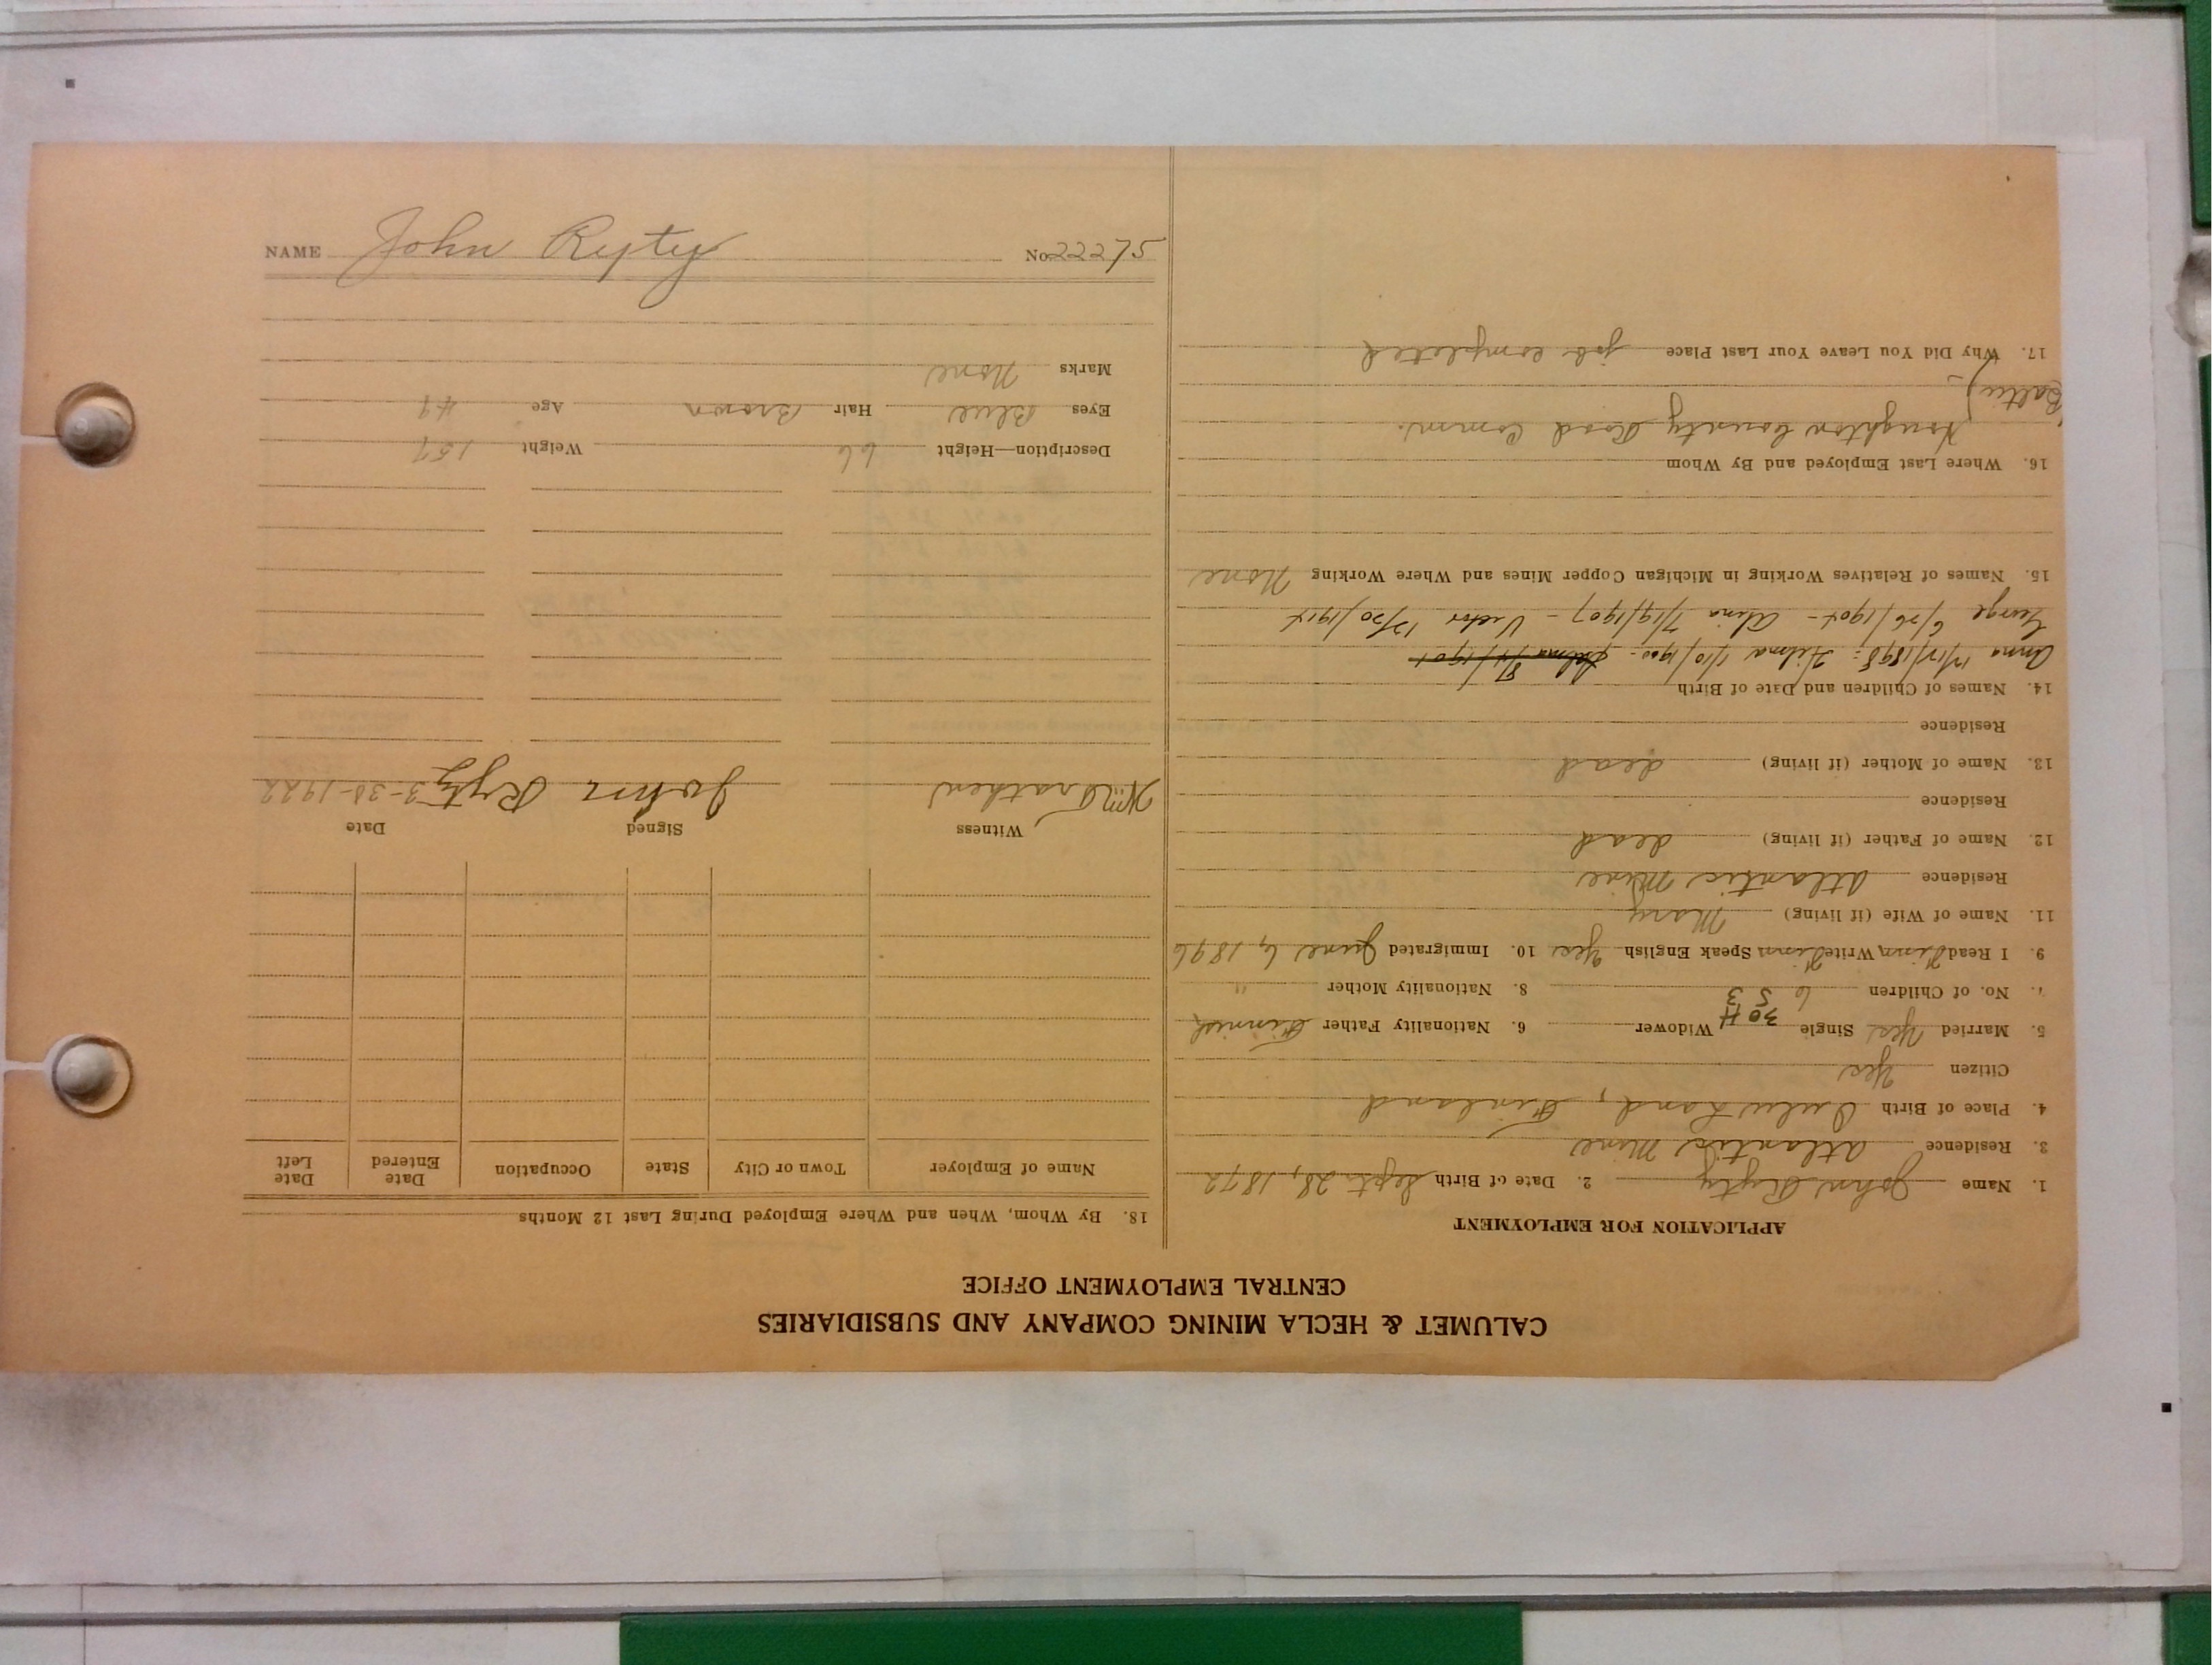 CALUMET & HECLA MINING COMPANY AND SUBSIDIARIES
CENTRAL EMPLOYMENT OFFICE
APPLICATION FOR EMPLOYMENT
1. Name John Ryty 2. Date of Birth Sept. 28, 1872
3. Residence Atlantic Mine
4. Place of Birth Oulu Land, Finland
Citizen Yes
5. Married Yes Single Widower 6. Nationality Father Finnish
30 H
7. No. of Children 6 5 3 8. Nationality Mother "
9. I Read Finn Write Finn Speak English Yes 10. Immigrated June 6, 1896
11. Name of Wife (if living) Mary
Residence Atlantic Mine
12. Name of Father (if living) dead
Residence
13. Name of Mother (if living) dead
Residence
14. Names of Children and Date of Birth
Anna 1898 - Hilma 1/10/1900 -
George 6/26/1904 - Aina 7/19/1907 - Victor 12/20/1914
15. Names of Relatives Working in Michigan Copper Mines and Where Working None
16. Where Last Employed and By Whom
Houghton County Road Comm.
Baltic
17. Why Did You Leave Your Last Place job completed
18. By Whom, When and Where Employed During Last 12 Months
Name of Employer Town or City State Occupation Date Entered Date Left
Witness Signed Date
John Ryty 3-30-1922
Description—Height 66 Weight 157
Eyes Blue Hair Brown Age 49
Marks None
NAME John Ryty No. 22275